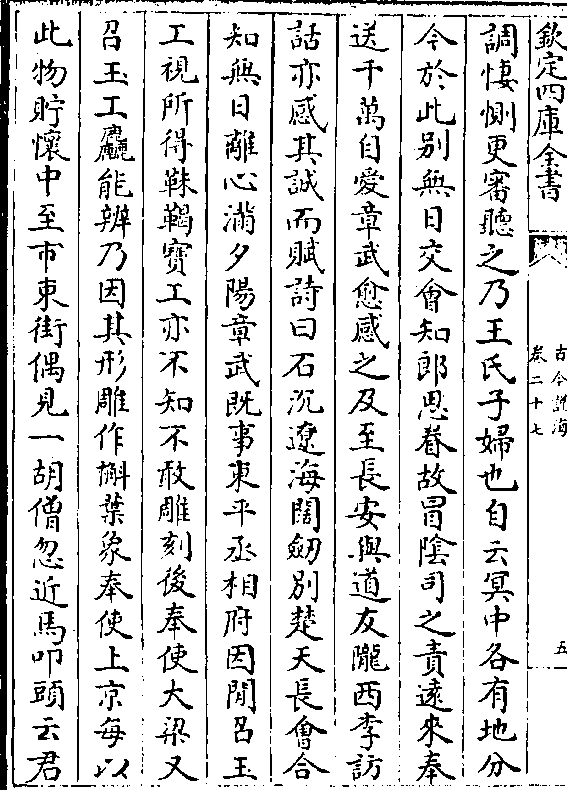 欽定四庫全書
古今說海
卷二十七
五
調悽惻更審聽之乃王氏子婦也自云冥中各有地分
今於此别無日交會知郎思眷故冒陰司之責遠來奉
送千萬自愛章武愈感之及至長安與道友隴西李訪
話亦感其誠而賦詩曰石沉遼海闊劒别楚天長會合
知無日離心滿夕陽章武既事東平丞相府因閒召玉
工視所得靺鞨寶工亦不知不敢雕刻後奉使大梁又
召玉工麤能辨乃因其形雕作槲葉象奉使上京每以
此物貯懷中至市東街偶見一胡僧忽近馬叩頭云君